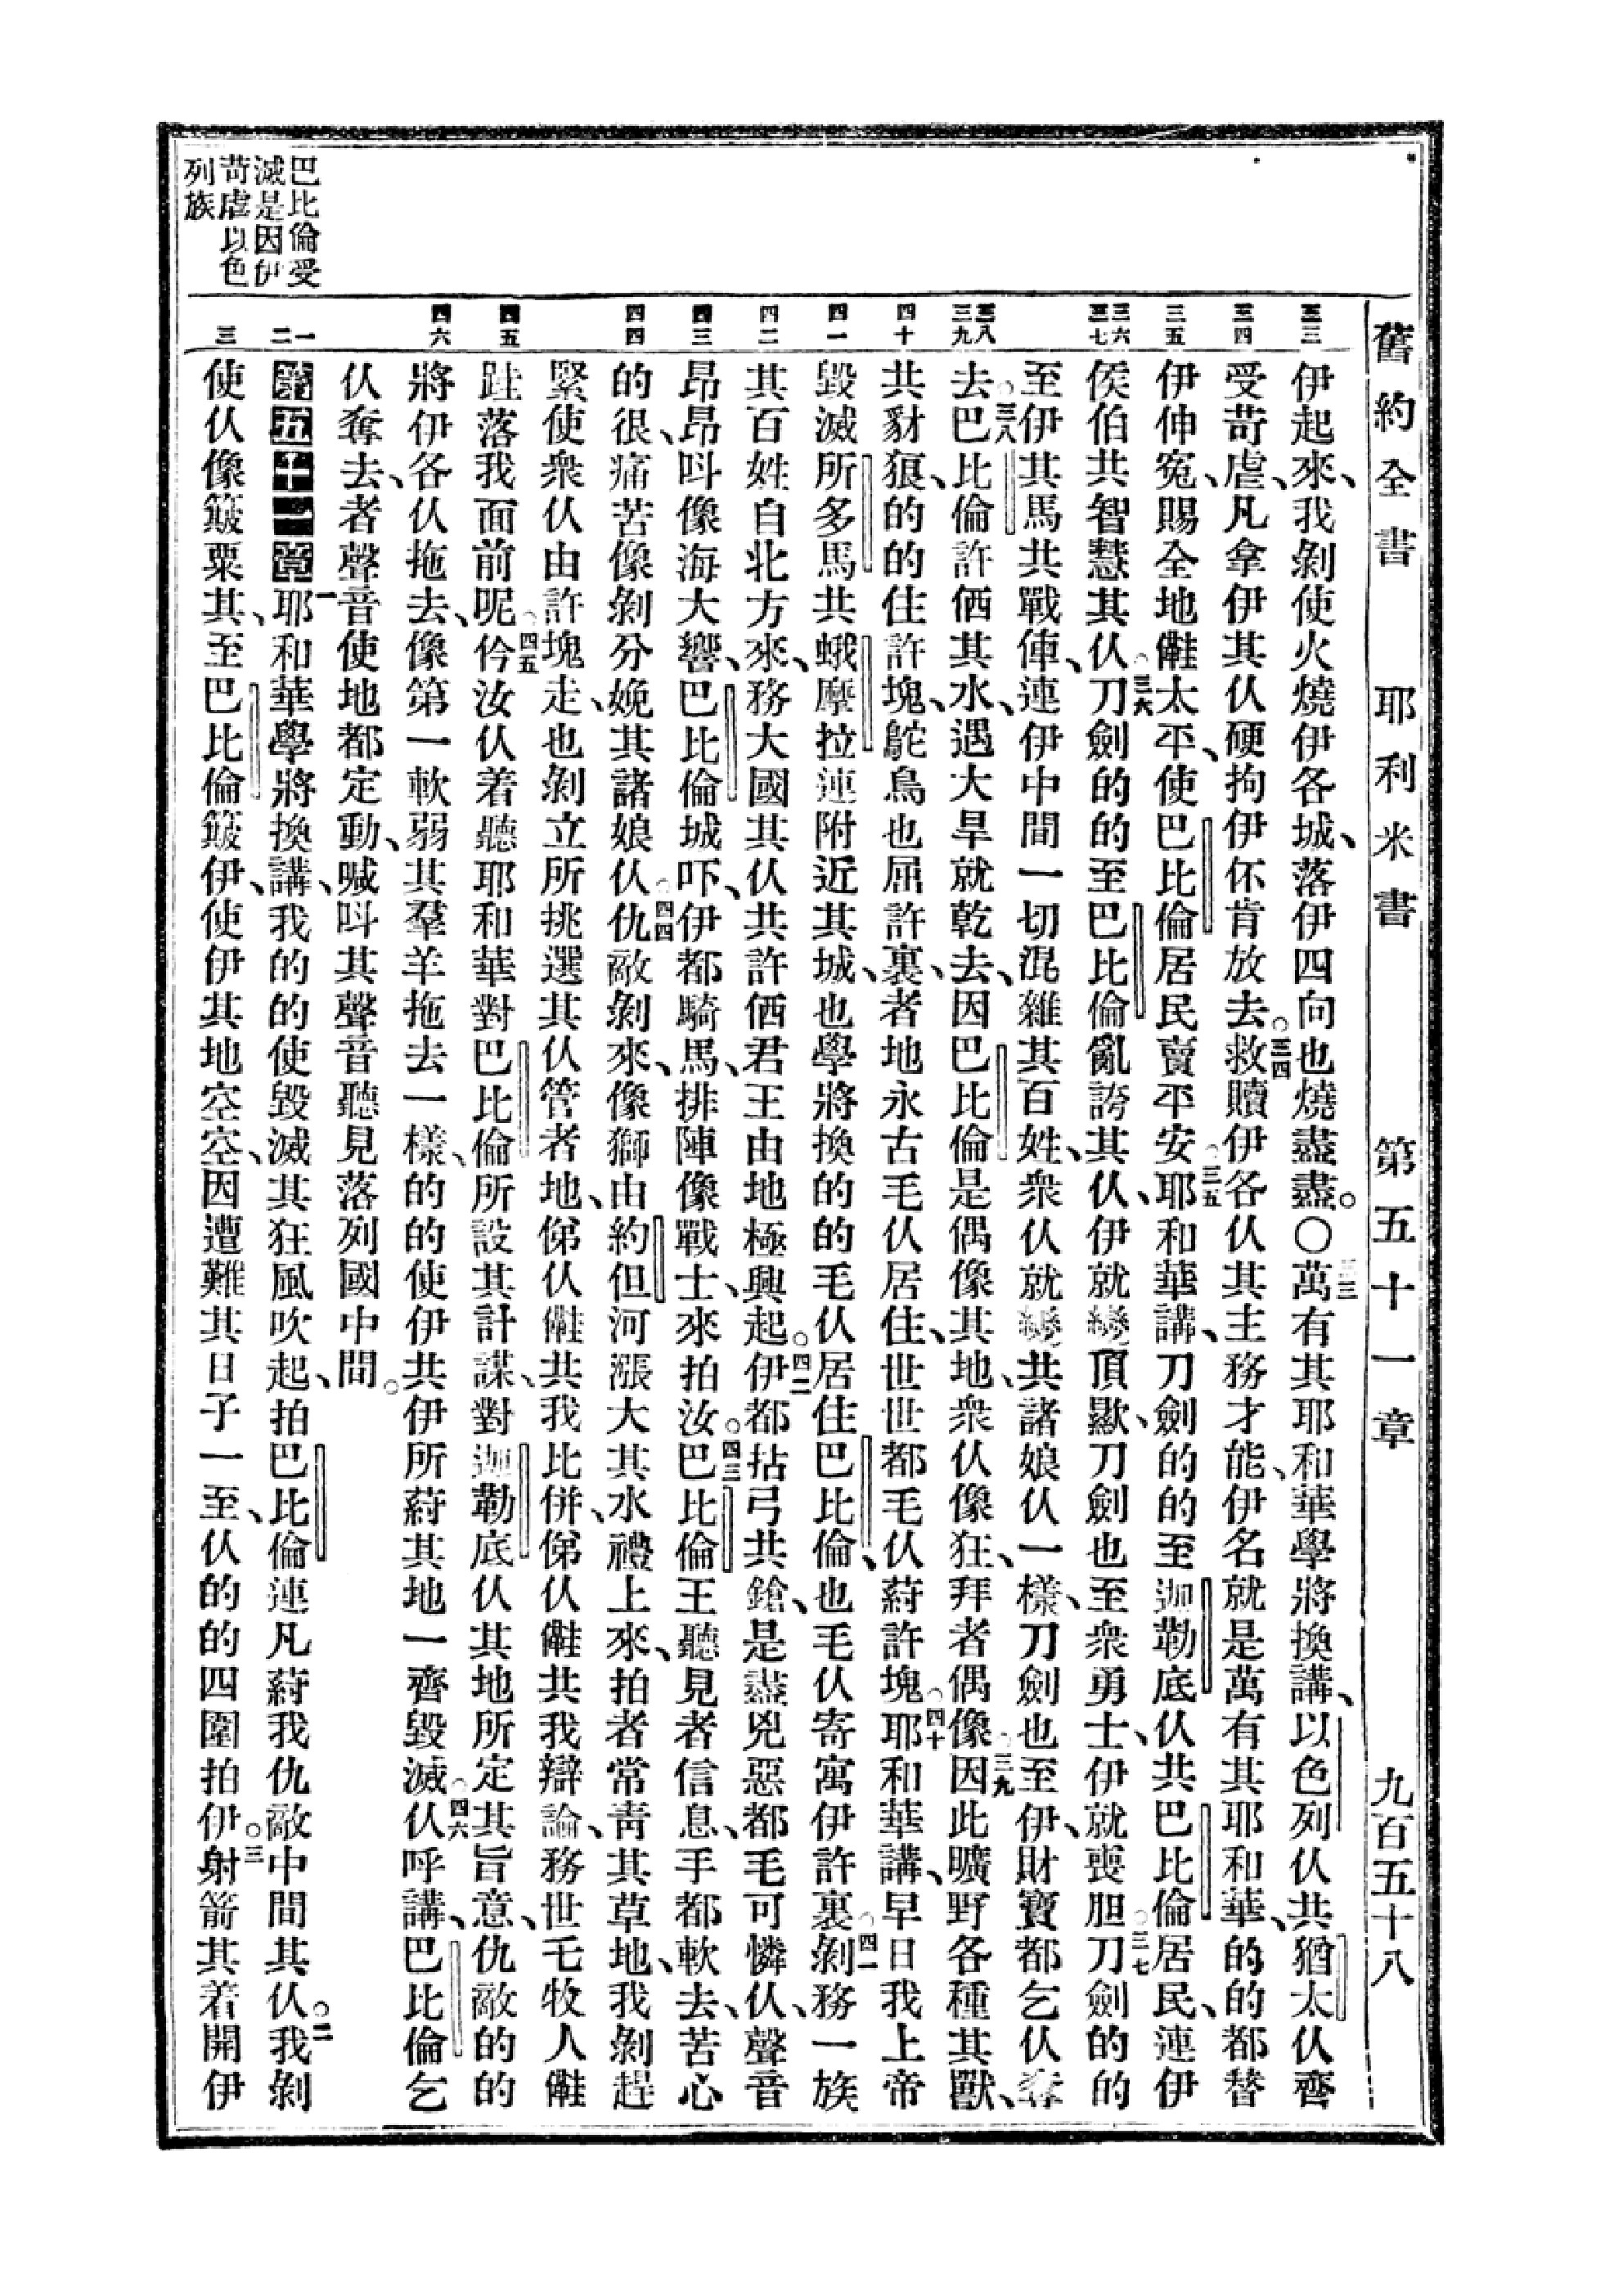 舊約全書　耶利米書　第五十一章　九百五十八
三三
三四
三五
三六
三七
三八
三九
四十
四一
四二
四三
四四
四五
四六
一
二
三
巴比倫受
滅是因伊
苛虐以色
列族
伊起來、我剝使火燒伊各城、落伊四向也燒盡盡。〇三三萬有其耶和華學將換講、以色列仫共猶太仫齊
受苛虐、凡拿伊其仫硬拘伊伓肯放去。三四救贖伊各仫其主務才能、伊名就是萬有其耶和華、的的都替
伊伸寃、賜全地𣍐太平、使巴比倫居民賣平安。三五耶和華講、刀劍的的至迦勒底仫共巴比倫居民、連伊
侯伯共智慧其仫。三六刀劍的的至巴比倫亂誇其仫、伊就變頂歞、刀劍也至衆勇士、伊就喪胆。三七刀劍的的
至伊其馬共戰俥、連伊中間一切混雜其百姓、衆仫就變共諸娘仫一樣、刀劍也至伊、財寶都乞仫奪
去。三八巴比倫許俩其水、遇大旱就乾去、因巴比倫是偶像其地、衆仫像狂、拜者偶像。三九因此曠野各種其獸、
共豺狼、的的住許塊、鴕鳥也屈許裏、者地永古毛仫居住、世世都毛仫蒔許塊。四十耶和華講、早日我上帝
毀滅所多馬共蛾摩拉連附近其城、也學將換的的毛仫居住巴比倫、也毛仫寄寓伊許裏。四一剝務一族
其百姓自北方來、務大國其仫共許俩君王由地極興起。四二伊都拈弓共鎗、是盡兇惡都毛可憐仫、聲音
昂昂呌像海大響、巴比倫城吓、伊都騎馬、排陣像戰士、來拍汝。四三巴比倫王聽見者信息、手都軟去、苦心
的很、痛苦像剝分娩其諸娘仫。四四仇敵剝來、像獅由約但河漲大其水禮上來、拍者常靑其草地、我剝趕
緊使衆仫由許塊走、也剝立所挑選其仫管者地、俤仫𣍐共我比併、俤仫𣍐共我辯論、務世乇牧人𣍐
跬落我面前呢。四五仱汝仫着聽耶和華對巴比倫所設其計謀、對迦勒底仫其地所定其旨意、仇敵的的
將伊各仫拖去、像第一軟弱其羣羊拖去一樣、的的使伊共伊所蒔其地一齊毀滅。四六仫呼講、巴比倫乞
仫奪去、者聲音使地都定動、喊呌其聲音聽見落列國中間。
第五十一章　一耶和華學將換講、我的的使毀滅其狂風吹起、拍巴比倫連凡蒔我仇敵中間其仫。二我剝
使仫像簸粟其、至巴比倫簸伊、使伊其地空空、因遭難其日子一至、仫的的四圍拍伊。三射箭其着開伊